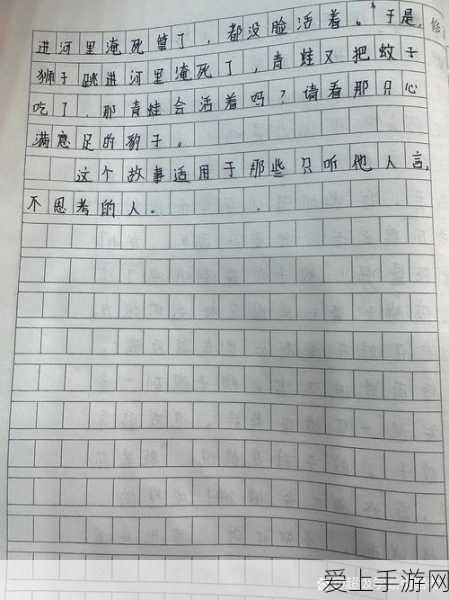 进河里淹死算了，都没脸活着。”于是，
狮子跳进河里淹死了，青蛙又把蚊子
吃了，那青蛙会活着吗？请看那只心
满意足的豹子。
这个故事适用于那些只听他人言，
不思考的人。
爱上手游网